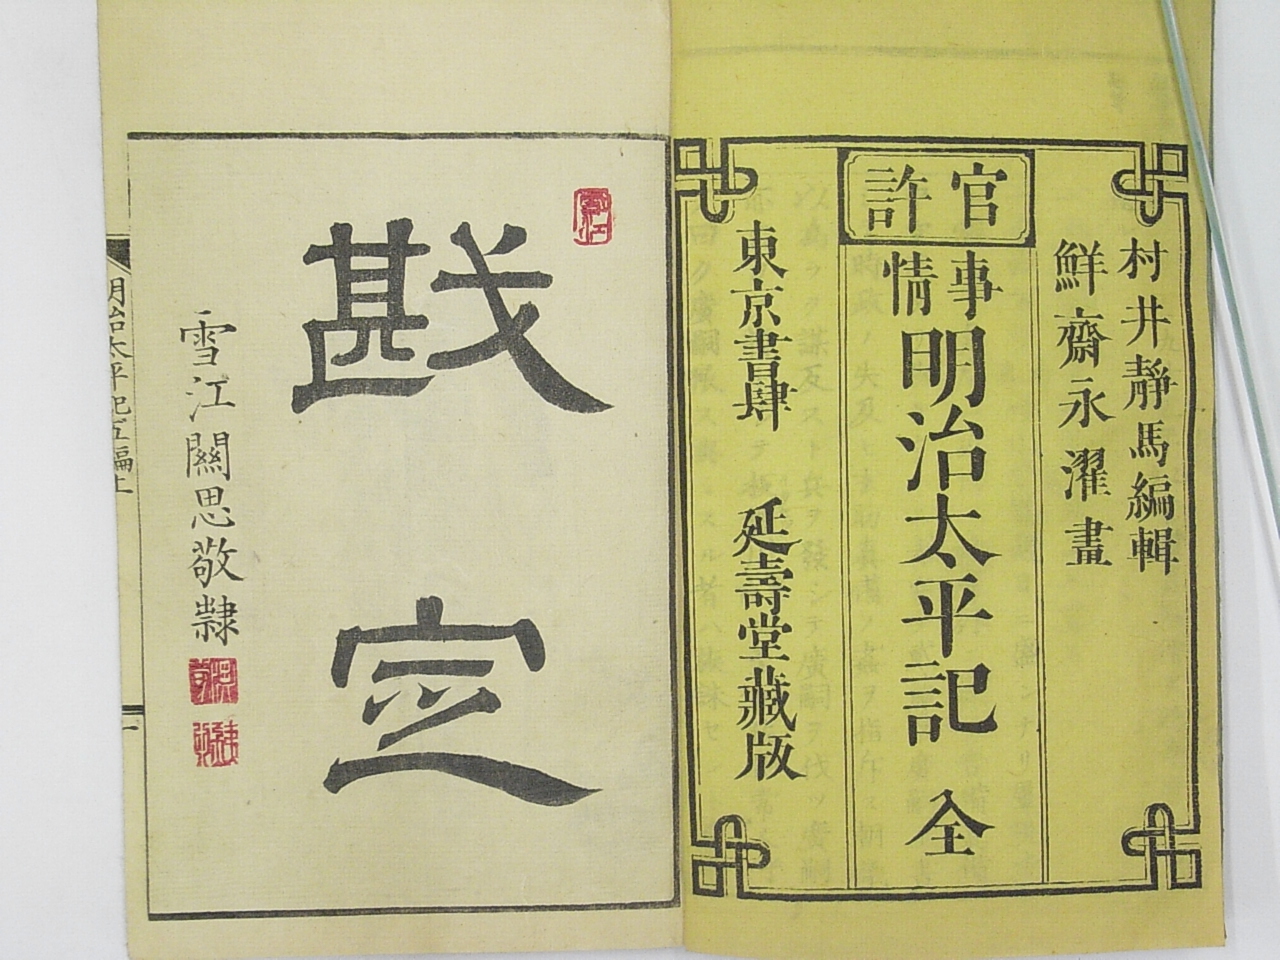 村井靜馬編輯
鮮齋永濯畫
官許
事情明治太平記 全
東京書肆 延壽堂藏版
雪江
戡定
雪江關思敬隸
明治太平記五編上
一